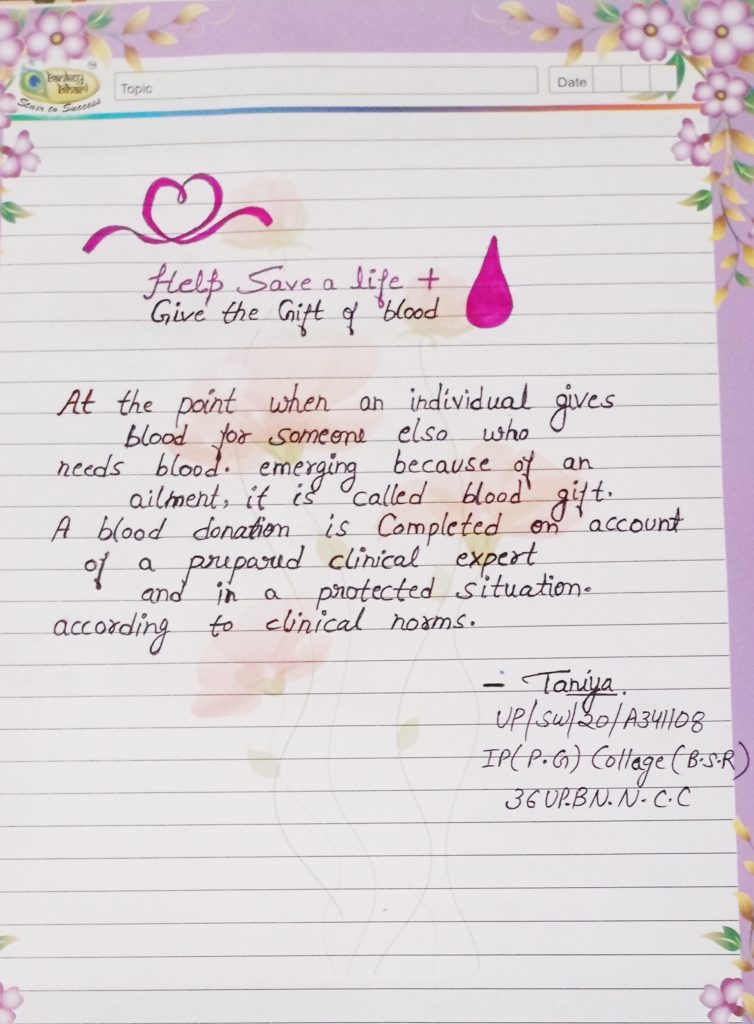 Bankey Bihari
Stair to Success
Topic
Date
Help Save a life +
Give the Gift of blood
At the point when an individual gives
blood for someone elso who
needs blood. emerging because of an
ailment, it is called blood gift.
A blood donation is Completed on account
of a prepared clinical expert
and in a protected situation.
according to clinical norms.
– Taniya.
UP/SW/20/A341108
IP(P.G) Collage (B.S.R)
36 UP.BN. N.C.C